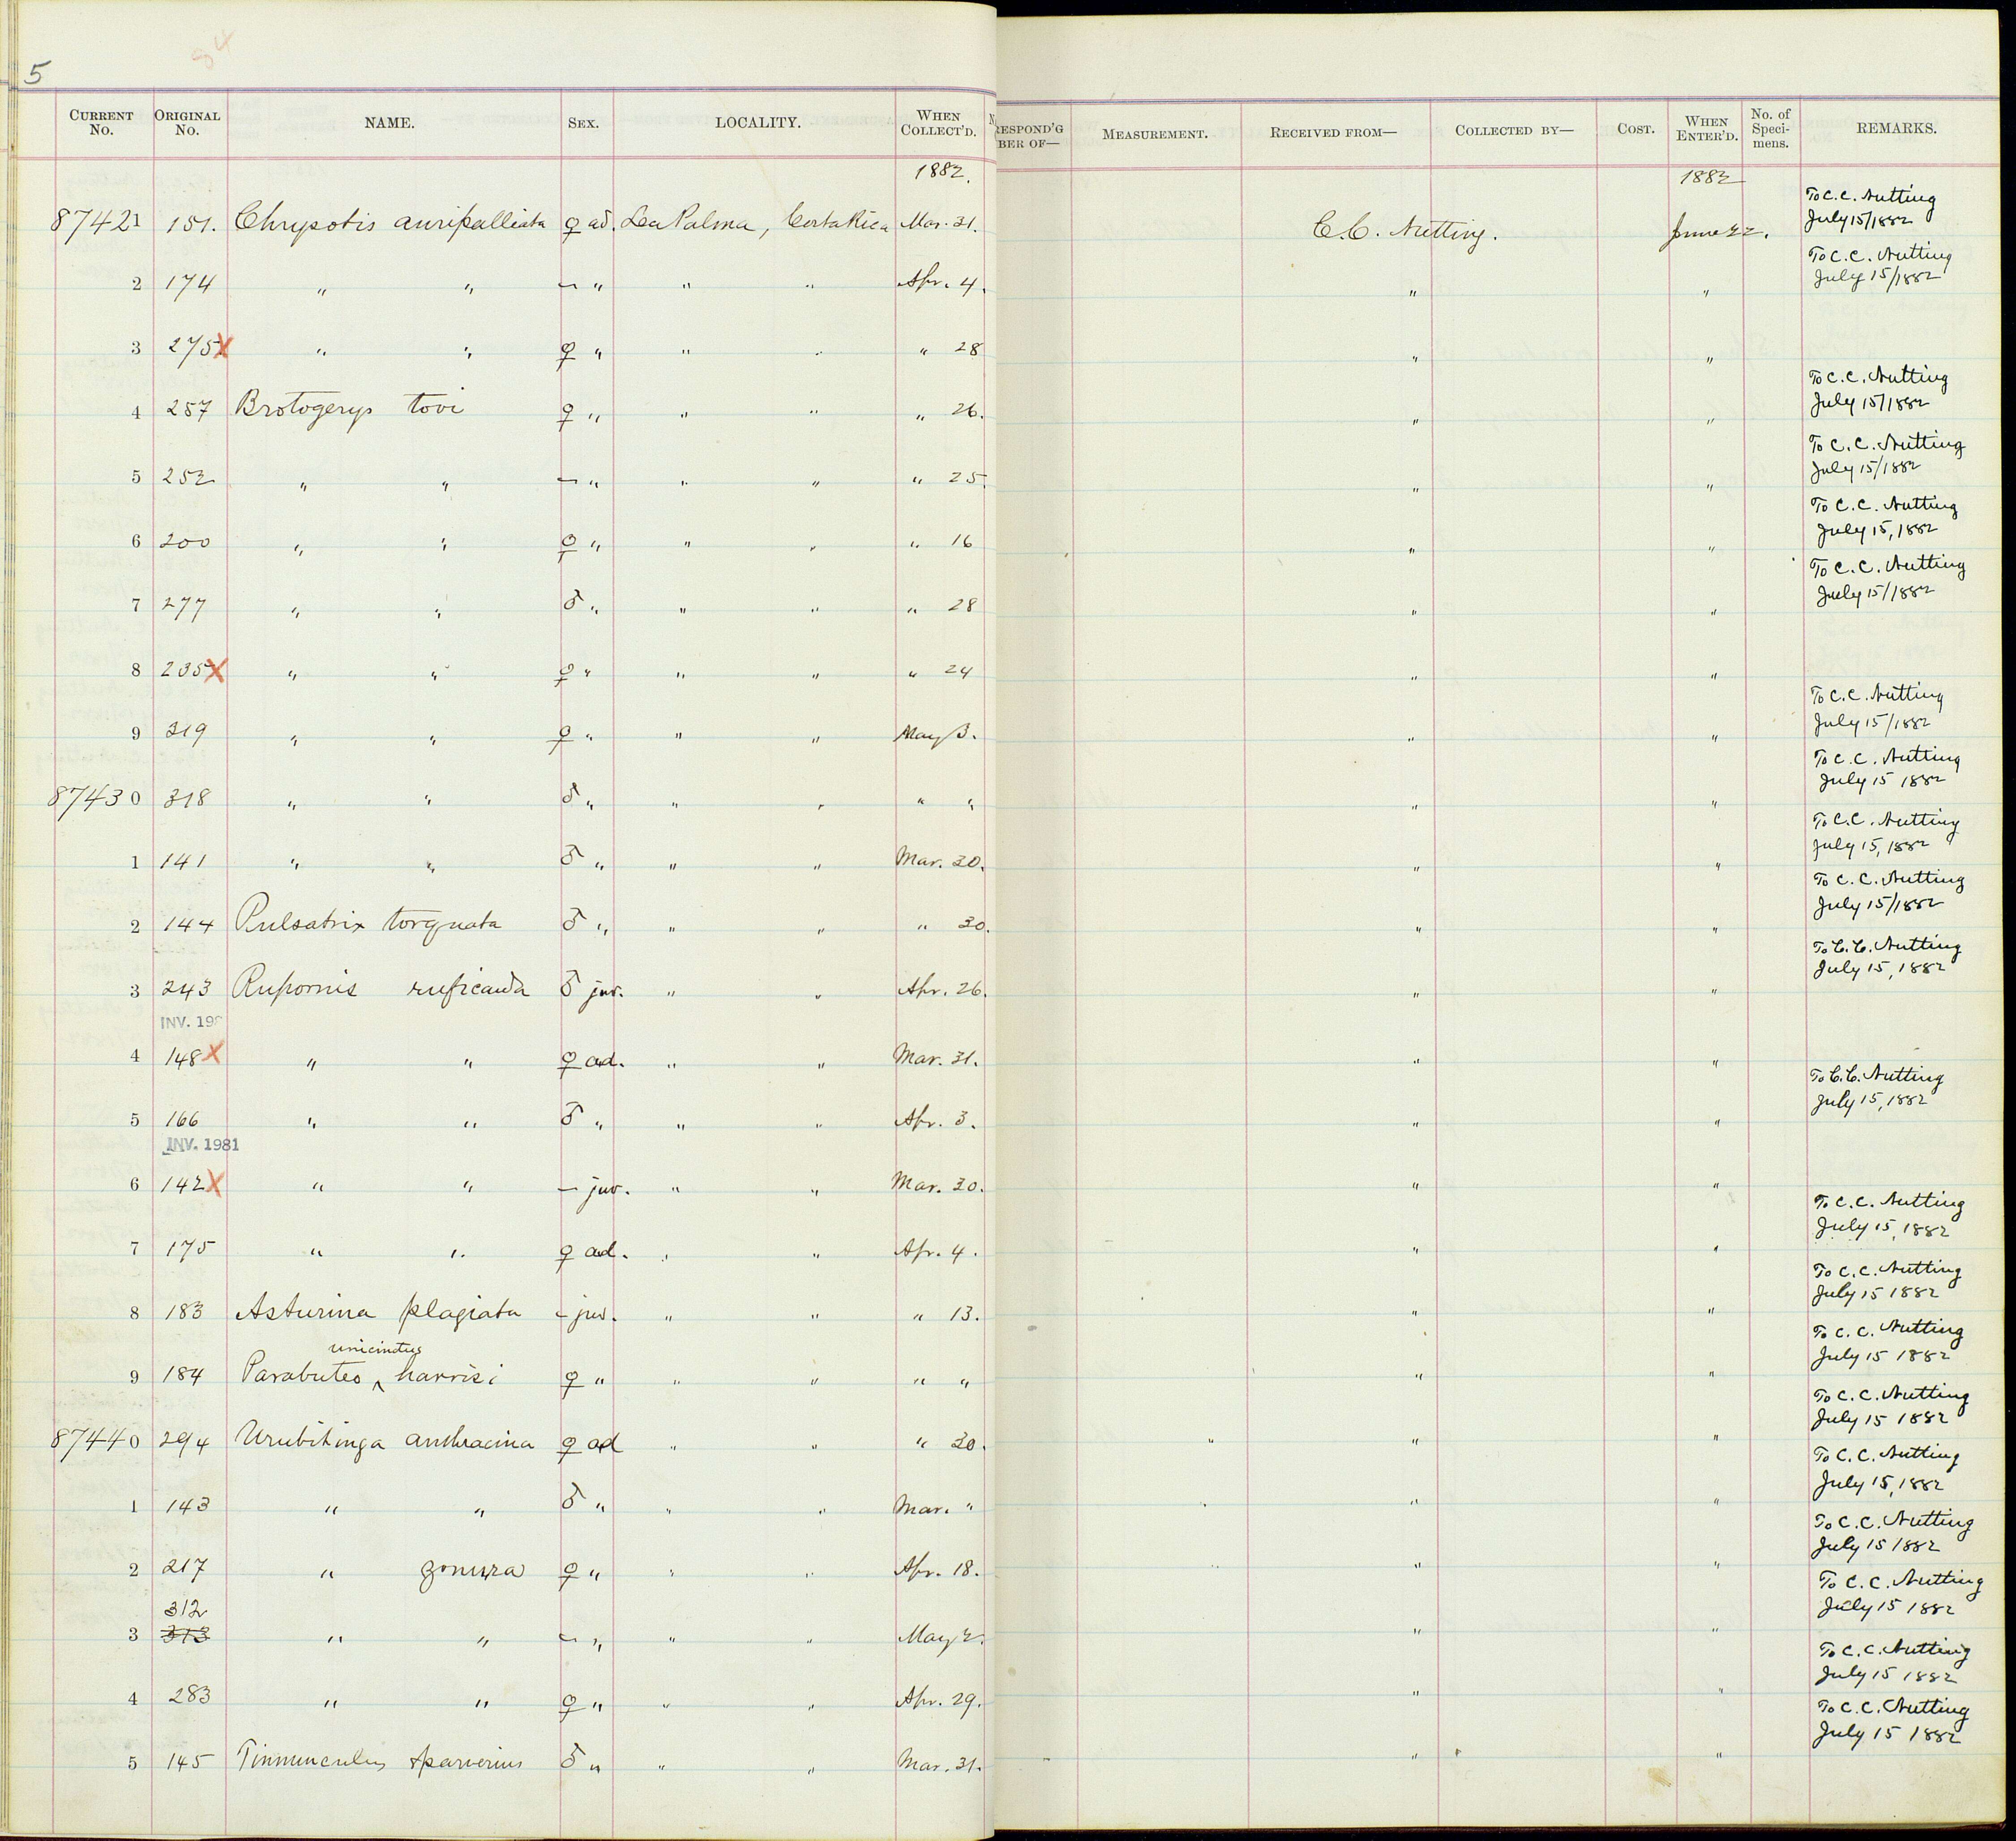 5
84
CURRENT No. ORIGINAL No. NAME. SEX. LOCALITY. WHEN COLLECT'D. RESPOND'G BER OF— MEASUREMENT. RECEIVED FROM— COLLECTED BY— COST. WHEN ENTER'D. No. of Speci- mens. REMARKS.
1882. 1882
87421 151. Chrysotis auripalliata ♀ ad. La Palma, Costa Rica Mar. 31. C.C. Nutting. June 22. To C.C. Nutting July 15/1882
2 174 " " — " " " Apr. 4. " " To C.C. Nutting July 15/1882
3 275 X " " ♀ " " " " 28 " "
4 257 Brotogerys tovi ♀ " " " " 26. " " To C.C. Nutting July 15/1882
5 252 " " — " " " " 25. " " To C.C. Nutting July 15/1882
6 200 " " ♀ " " " " 16 " " To C.C. Nutting July 15, 1882
7 277 " " ♂ " " " " 28 " " To C.C. Nutting July 15/1882
8 235 X " " ♀ " " " " 24 " "
9 319 " " ♀ " " " May 3. " " To C.C. Nutting July 15/1882
87430 318 " " ♂ " " " " " " " To C.C. Nutting July 15 1882
1 141 " " ♂ " " " Mar. 30. " " To C.C. Nutting July 15, 1882
2 144 Pulsatrix torquata ♂ " " " " 30. " " To C.C. Nutting July 15/1882
3 243 Rupornis ruficauda ♂ juv. " " Apr. 26. " " To C.C. Nutting July 15, 1882
INV. 198
4 148 X " " ♀ ad. " " Mar. 31. " "
5 166 " " ♂ " " " Apr. 3. " " To C.C. Nutting July 15, 1882
INV. 1981
6 142 X " " — juv. " " Mar. 30. " "
7 175 " " ♀ ad. " " Apr. 4. " " To C.C. Nutting July 15, 1882
8 183 Asturina plagiata — juv. " " " 13. " " To C.C. Nutting July 15 1882
unicinctus
9 184 Parabuteo ^ harrisi ♀ " " " " " " " To C.C. Nutting July 15 1882
87440 294 Urubitinga anthracina ♀ ad " " " 30. " " " To C.C. Nutting July 15 1882
1 143 " " ♂ " " " Mar. " " " " To C.C. Nutting July 15, 1882
2 217 " zonura ♀ " " " Apr. 18. " " " To C.C. Nutting July 15 1882
312
3 313 " " — " " " May 2. " " To C.C. Nutting July 15 1882
4 283 " " ♀ " " " Apr. 29. " " To C.C. Nutting July 15 1882
5 145 Tinnunculus sparverius ♂ " " " Mar. 31. " " To C.C. Nutting July 15 1882